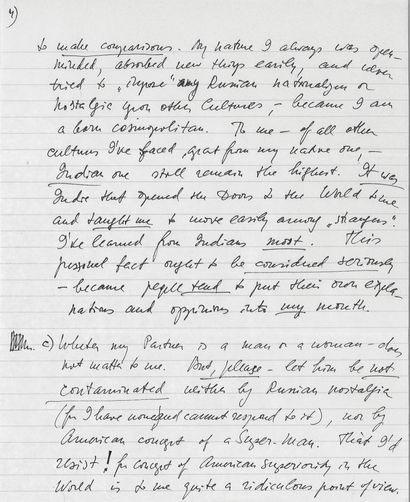 4)
to make comparisons. My nature I always was open-
minded, absorbed new things easily, and never
tried to "impose" my Russian nationalism or
Nostalgia upon other Cultures, – because I am
a born cosmopolitan. To me – of all other
cultures I've faced, apart from my native one, –
Indian one still remain the highest. It was
India that opened the Doors to the World to me
and taught me to move easily among "strangers".
I've learned from Indians most. This
personal fact ought to be considered seriously
– because people tend to put their own expla-
nations and oppinions into my mouth.
c) Whether my Partner is a man or a woman – does
not matter to me. But, please – let him be not
contaminated neither by Russian nostalgia
(for I have none and cannot respond to it), nor by
American concept of a Super-man. That I'd
resist! for concept of American Superiority in the
World is to me quite a ridiculous point of view.